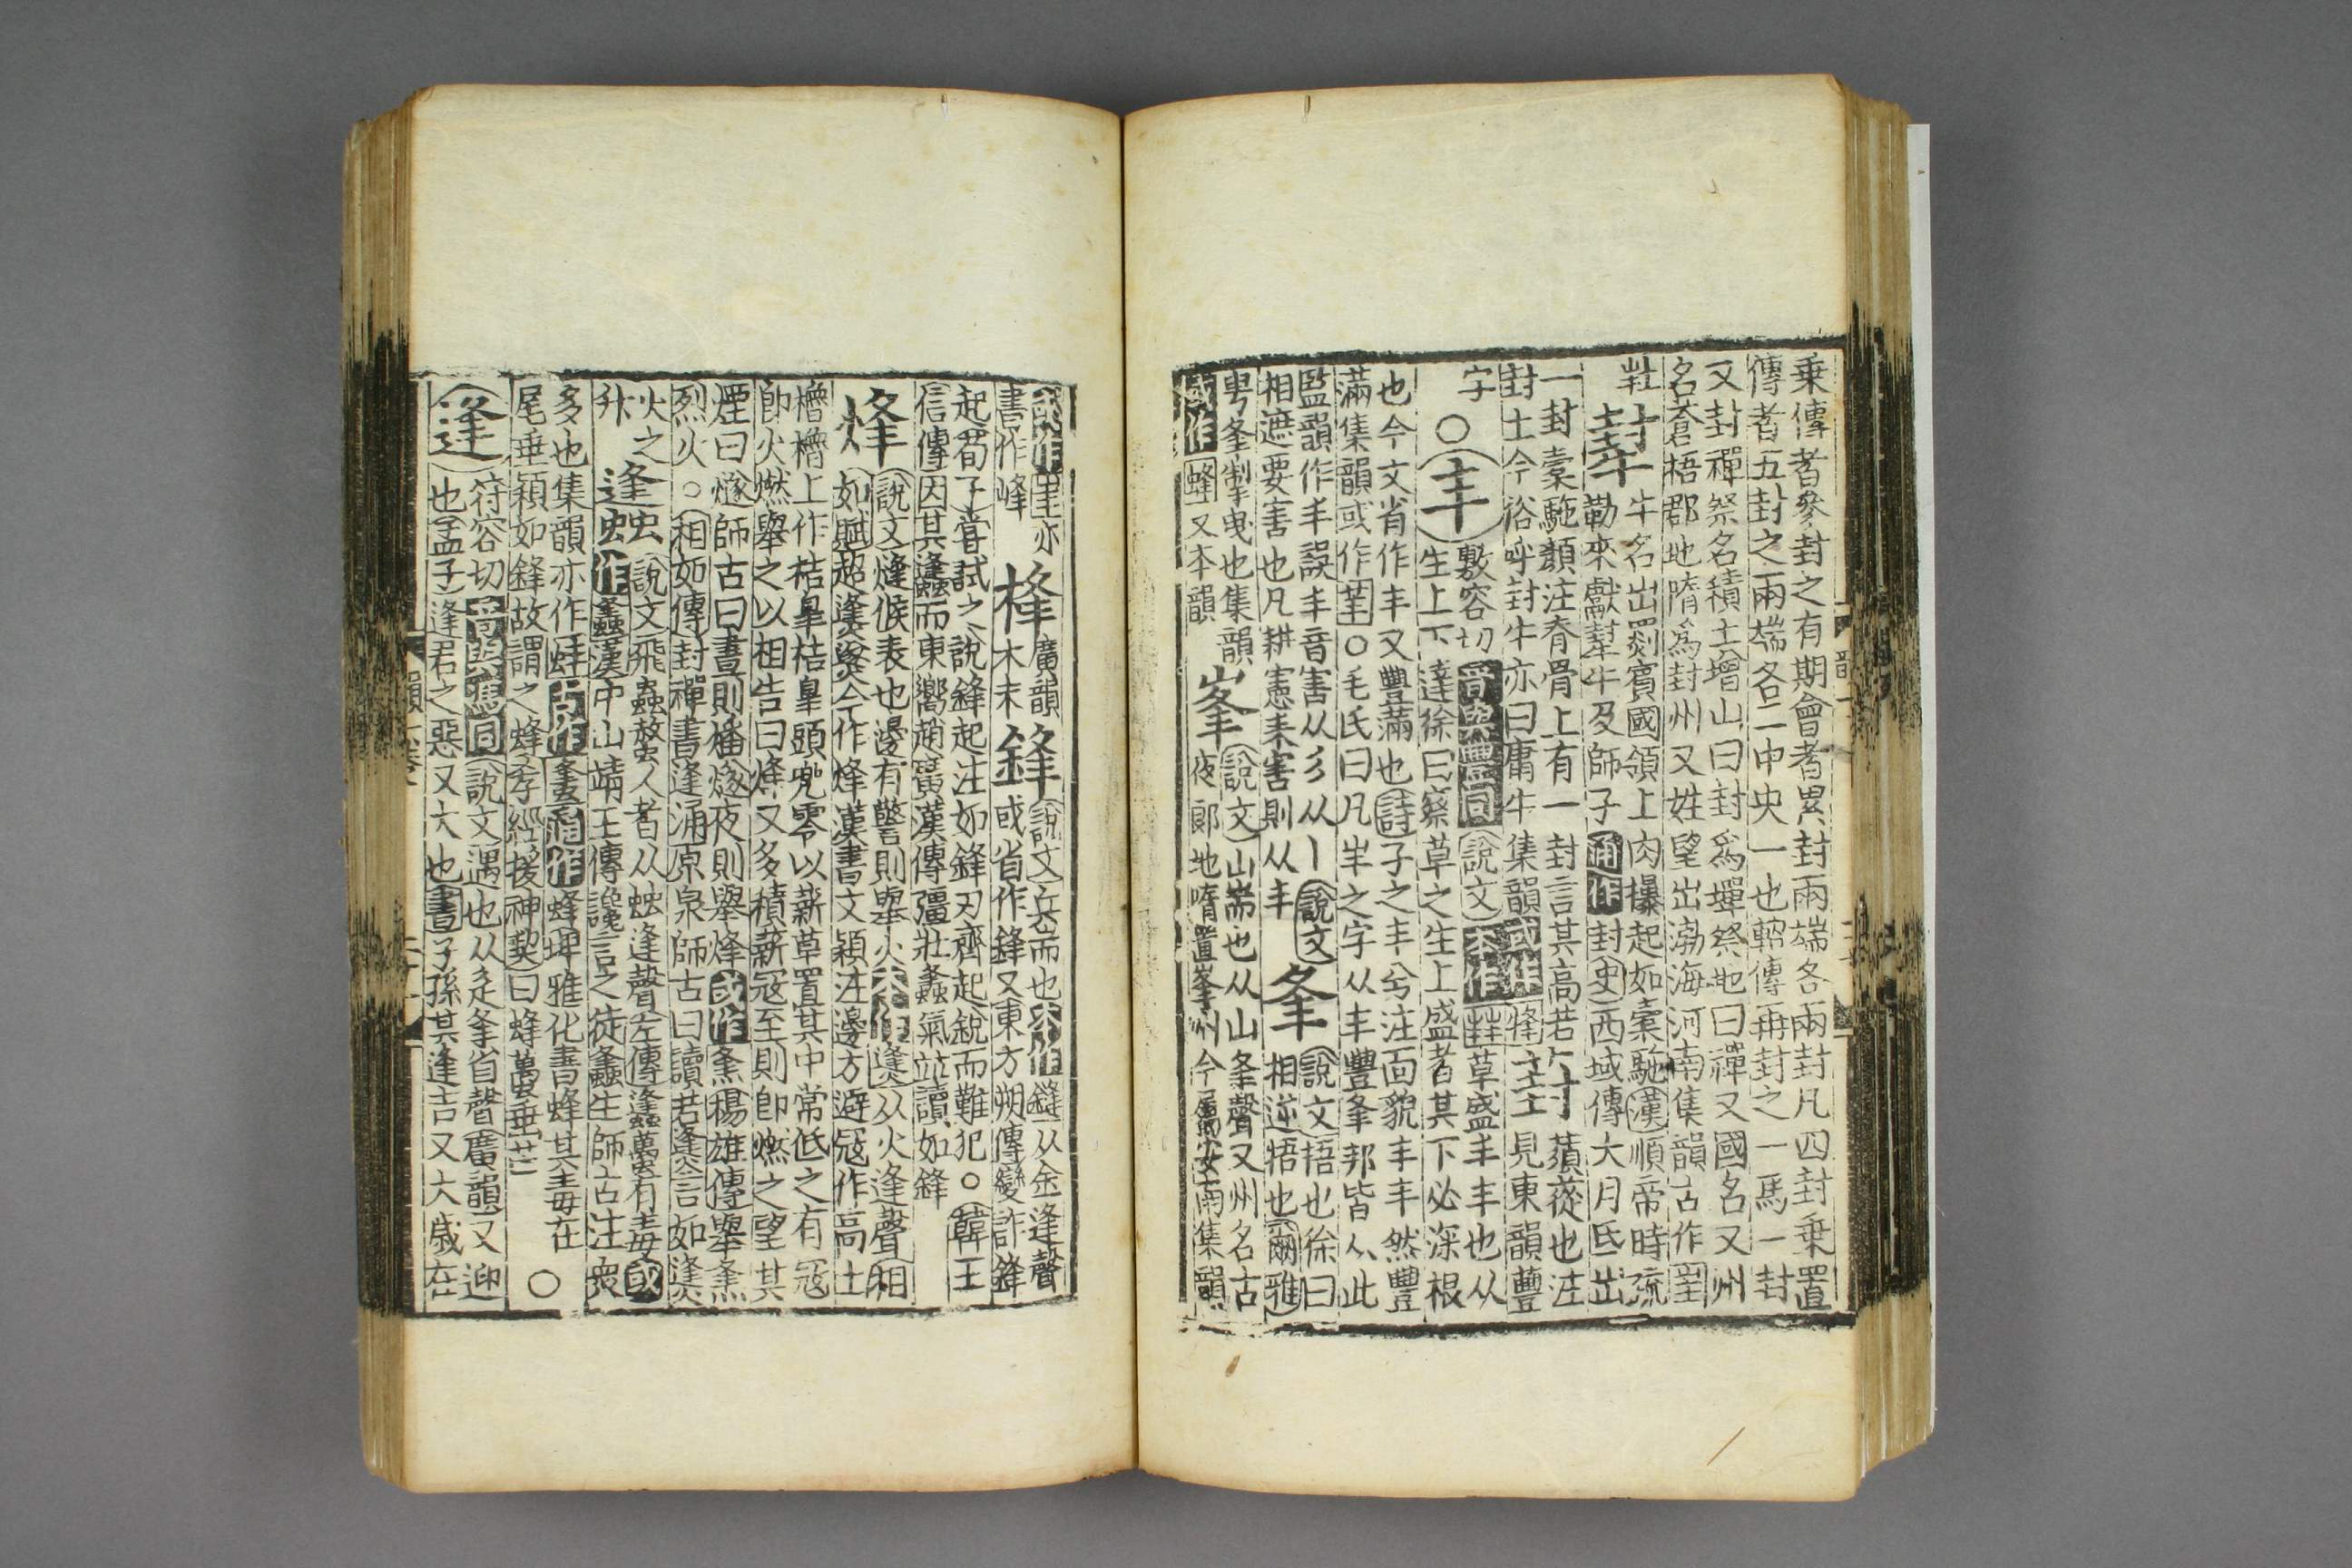 乗傳者參封之有期會者累封兩端各兩封凡四封乗置
傳者五封之兩端各二中央一也軺傳再封之一馬一封
又封禪祭名積土增山曰封爲墠祭地曰禪又國名又州
名蒼梧郡地隋爲封州又姓望出渤海河南集韻古作𡉘
𡉚
犎
牛名出罽賓國領上肉㩧起如橐駞漢順帝時疏
勒來獻犎牛及師子通作封史西域傳大月氐出
一封橐駞顔注脊骨上有一封言其高若
封土今俗呼封牛亦曰㹙牛集韻或作㸼
葑
蘋蓯也注
見東韻蘴
字
○
丰
敷容切音與豐同說文本作𡴀草盛丰丰也从
生上下達徐曰察草之生上盛者其下必深根
也今文省作丰又豐滿也詩子之丰兮注面貌丰丰然豐
滿集韻或作𦬙○毛氏曰凡半之字从丰豐夆邦皆从此
監韻作丯誤丯音害从彡从丨說文
相遮要害也凡耕憲耒害則从丯
夆
說文牾也徐曰
相逆牾也爾雅
甹夆掣曳也集韻
或作䗬又本韻
峯
說文山耑也从山夆聲又州名古
夜郎地隋置峯州今屬安南集韻
或作𡶶亦
書作峰
桻
廣韻
木末
鋒
說文兵耑也本作鏠从金逢聲
或省作鋒又東方朔傳變詐鋒
起荀子嘗試之說鋒起注如鋒刃齊起銳而難犯○韓王
信傳因其䗬而東嚮趙黃漢傳彊壯蠭氣竝讀如鋒
烽
說文㷭候表也邊有警則舉火本作㷭从火逢聲相
如賦超逢㷭今作烽漢書文穎注邊方避寇作高土
櫓櫓上作桔皋桔皋頭兜零以薪草置其中常低之有寇
即火燃舉之以相告曰烽又多積薪寇至則即燃之望其
煙曰燧師古曰晝則燔燧夜則舉烽或作㷨楊雄傳舉㷨
烈火○相如傳封禪書逢涌原泉師古曰讀若㷭言如㷭
火之
升
䗬
說文飛蟲螫人者从䖵逢聲左傳蠭蠆有毒或
作蠭漢中山靖王傳讒言之徒蠭生師古注衆
多也集韻亦作蜯古作䗬通作蜂埤雅化書蜂其毒在
尾垂穎如鋒故謂之蜂孝經援神契曰蜂蠆垂芒
○
逢
符容切音與馮同說文遇也从辵夆省聲廣韻又迎
也孟子逢君之惡又大也書子孫其逢吉又大歲在